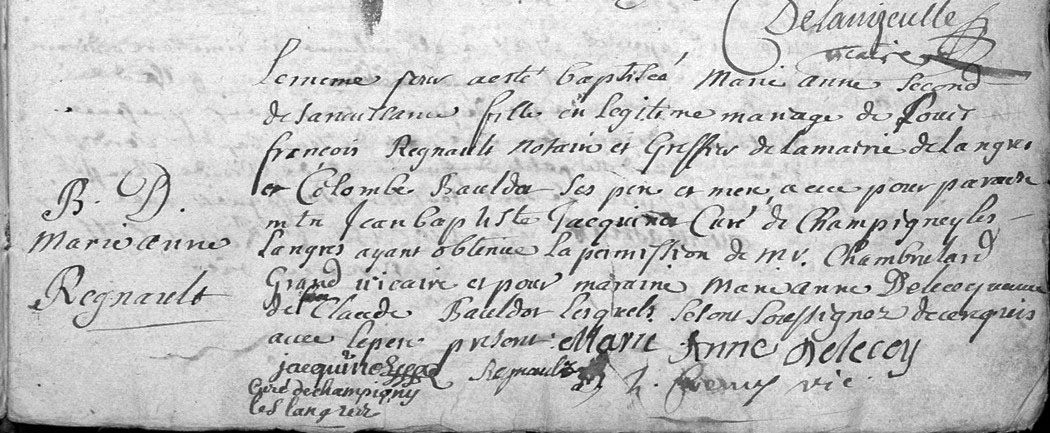 Delanizeulle
vicaire
Lememe jour aesté baptiséé Marie anne second
desanaissance fille en legitime mariage de Louis
francois Regnault notaire et Greffier delamairie delangres
et Colombe Bauldot ses pere et mere, a eue pour parain
mtre Jean baptiste Jacquinot Curé de Champigneyles
Langres ayant obtenue la permission de mr. Chambrulard
Grand vicaire et pour maraine Marie anne Delecey veuve
de feu Claude Bauldot lesquels se sont soussignez de ce enquis
avec lepere present. Marie Anne Delecey
B. D.
Marie anne
Regnault
jacquinot Regnault vic
Curé dechampigny
les langres